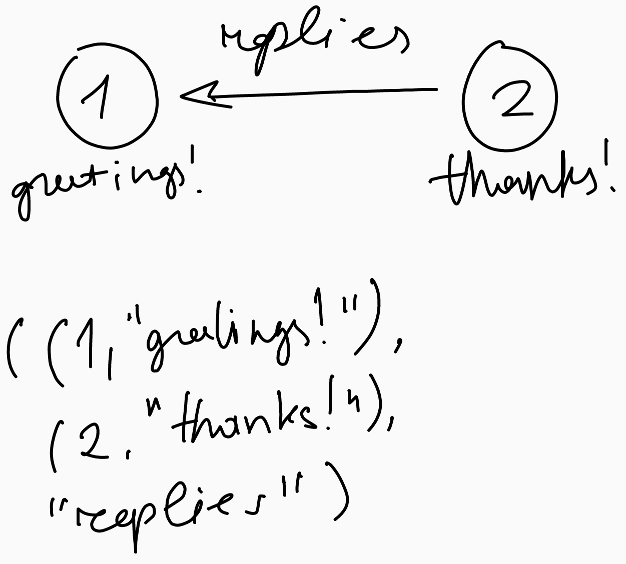 replies
1
2
greetings!
thanks!
((1, "greetings!"),
(2, "thanks!"),
"replies")